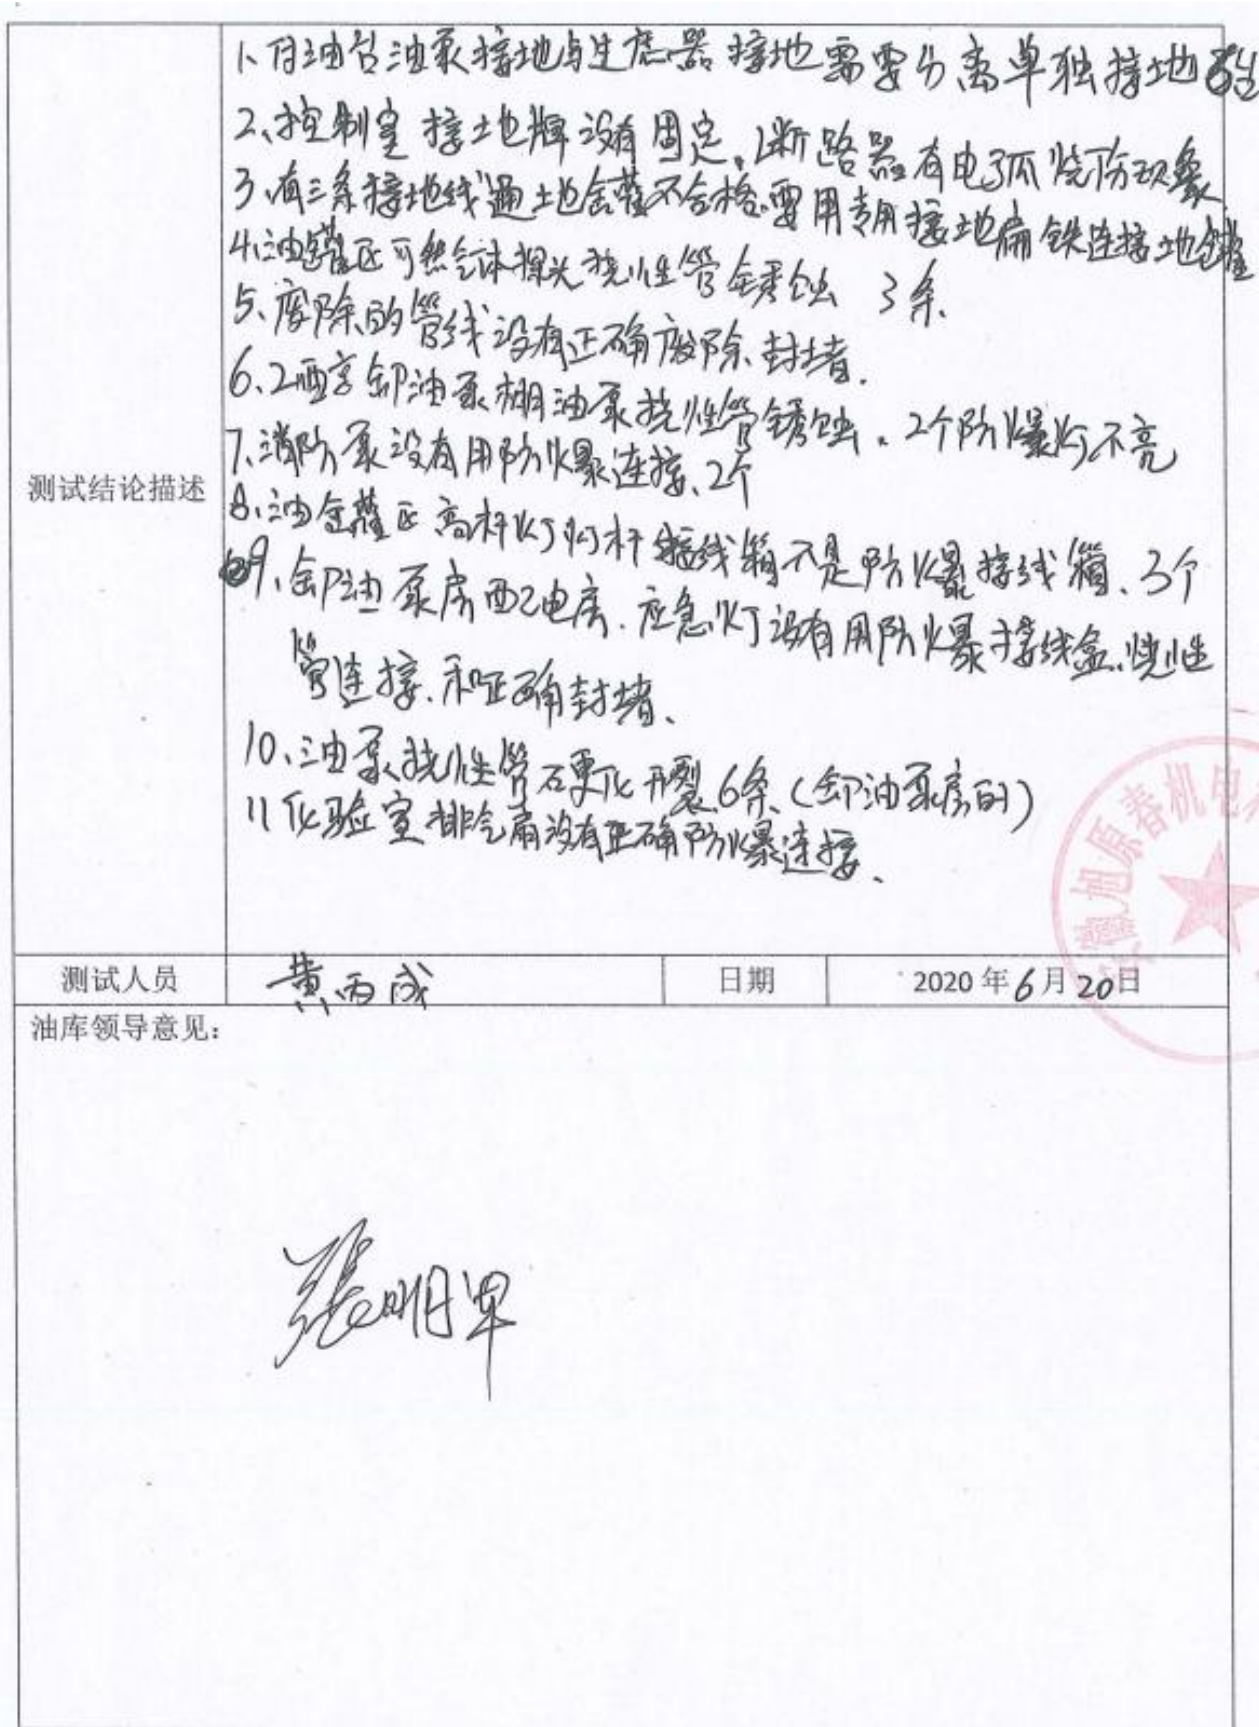 1、付油台油泵接地与过虑器接地需要分离单独接地
2、控制室接地牌没有固定,1断路器有电弧烧伤现象
3、有三条接地线通土地金薩不合格.要用专用接地扁铁连接地
4、油罐区可然气体探头挠性管锈蚀 3条.
5、废除的管线没有正确废除、封堵.
6、2西亭卸油泵棚油泵挠性管锈蚀.2个防爆灯不亮
7、消防泵没有用防爆连接、2个
测试结论描述
8、油罐区高杆灯灯杆接线箱不是防爆接线箱、3个
9、卸油泵房配电房.应急灯没有用防爆接线盒.挠性
管连接.和正确封堵、
10、油泵挠性管硬化开裂.6条、(卸油泵房的)
11化验室排气扇没有正确防爆连接、
旭原春机电
测试人员 黄丙成 日期 2020年6月20日
油库领导意见:
张明军